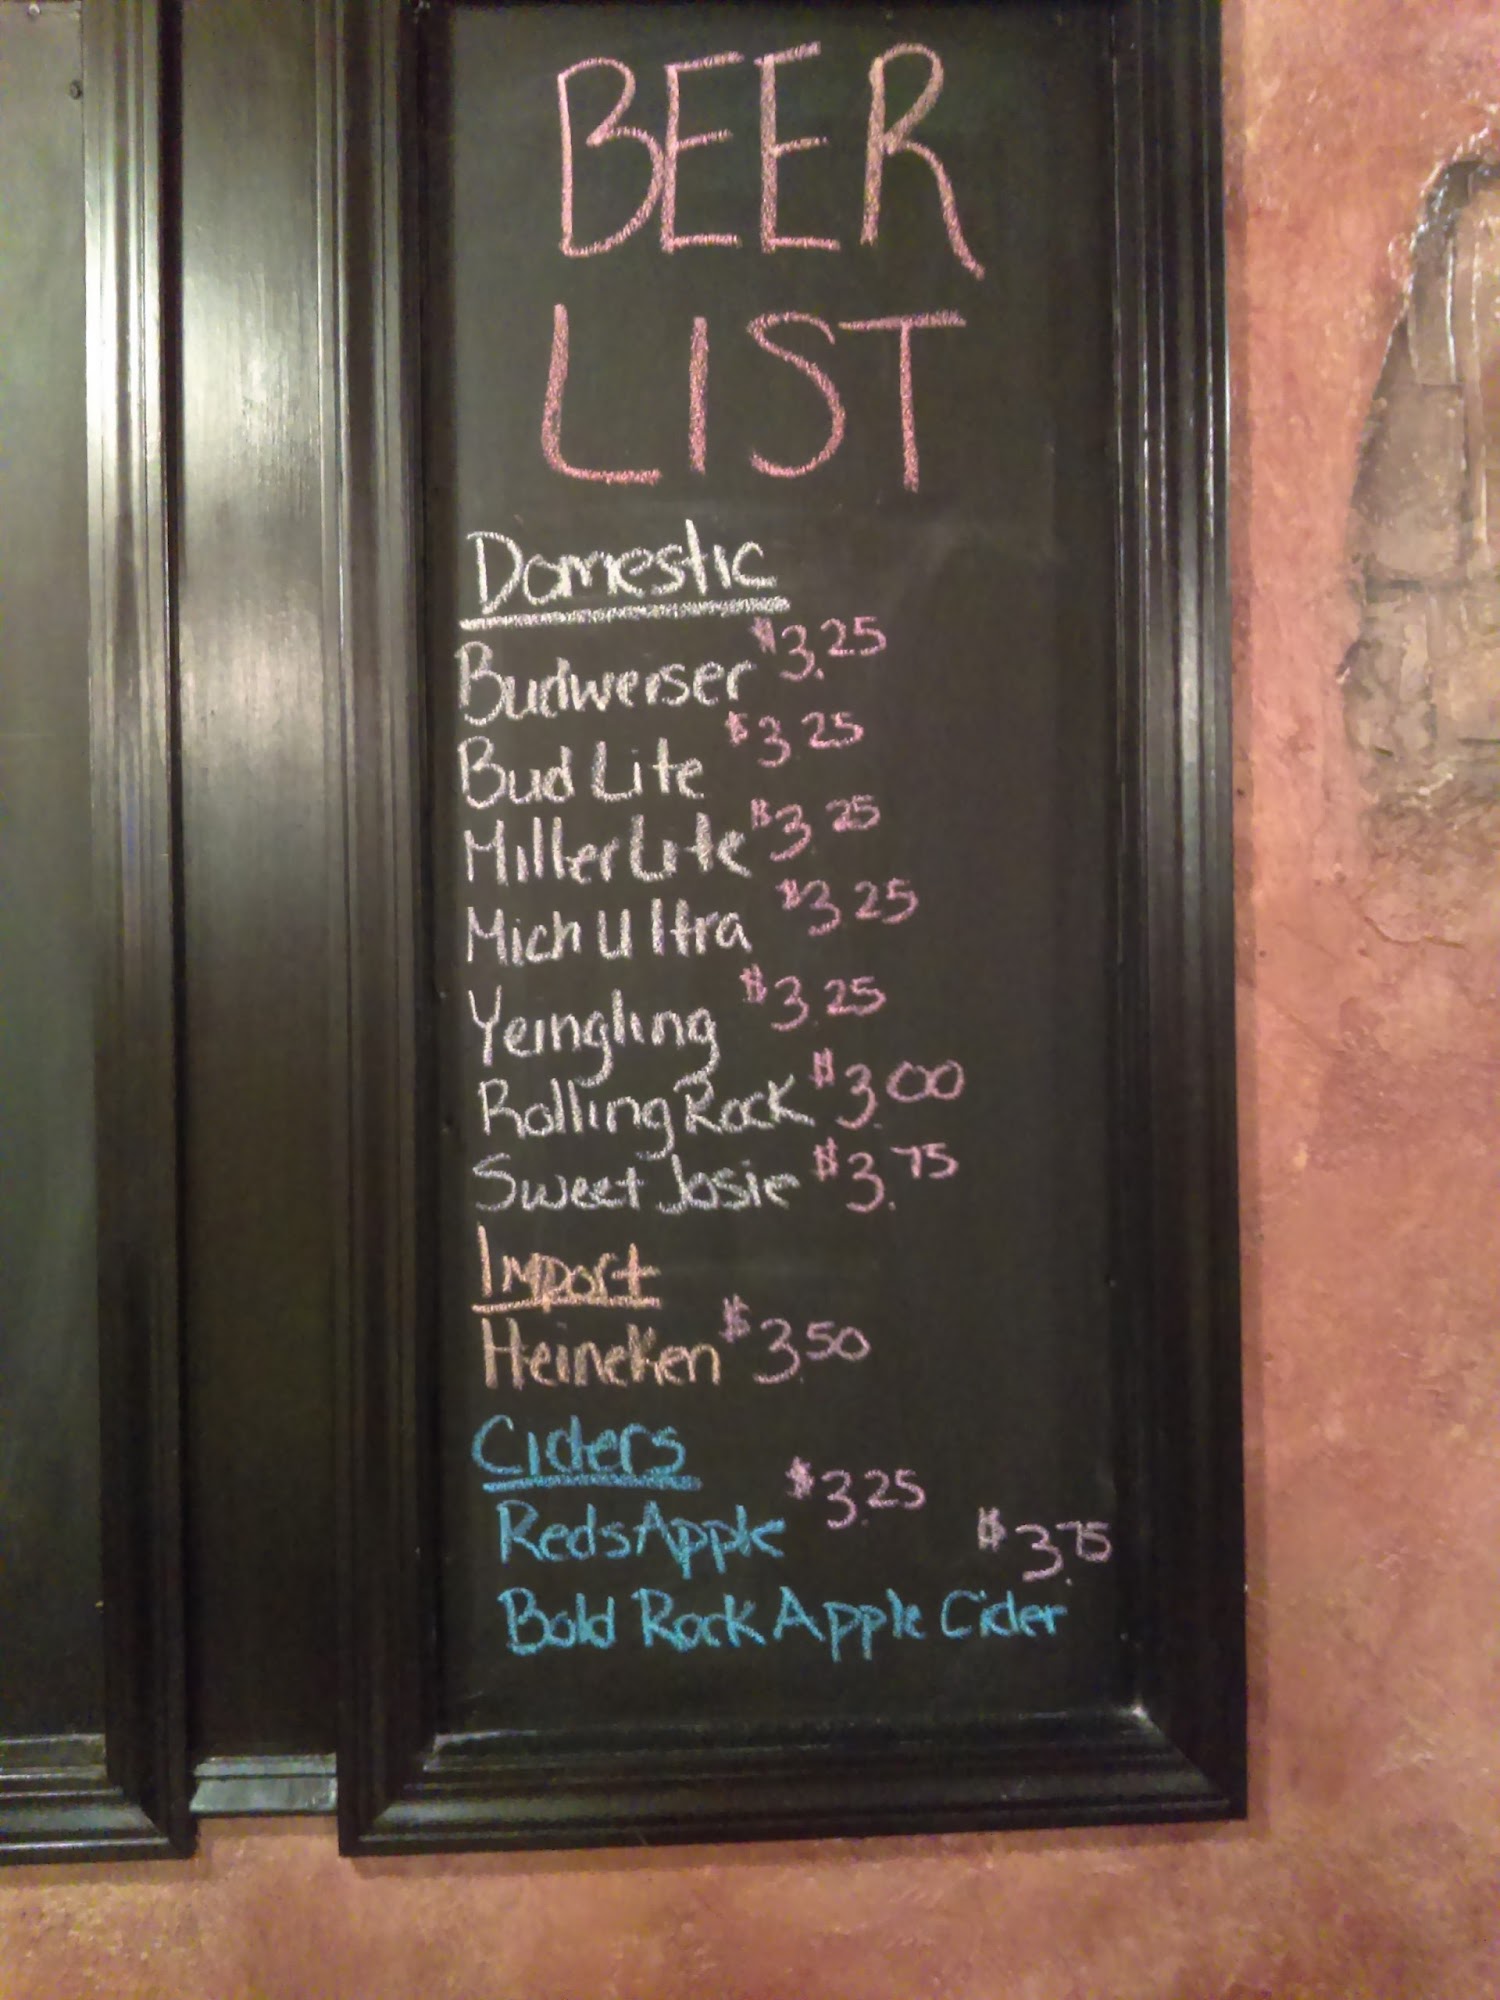 BEER
LIST
Domestic
Budweiser $3.25
Bud Lite $3.25
Miller Lite $3.25
Mich Ultra $3.25
Yeingling $3.25
Rolling Rock $3.00
Sweet Josie $3.75
Import
Heineken $3.50
Ciders
Reds Apple $3.25
Bold Rock Apple Cider $3.75